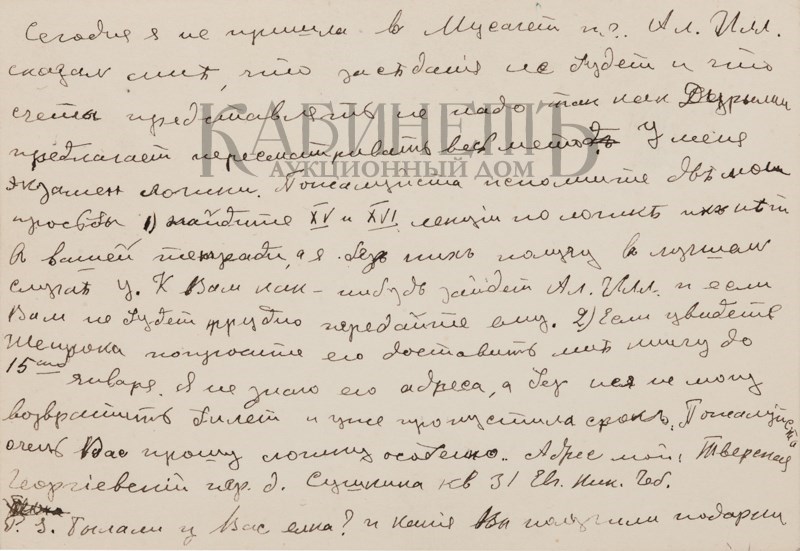 Сегодня я не пришла в Мусагет п.? Ал. Илл.
сказал мнѣ, что засѣданія не будет и что
счеты представлять не надо так как Дурылин
предлагает пересматривать весь метод. У меня
экзамен логики. Пожалуйста исполните двѣ мои
просьбы 1) найдите XV и XVI лекціи по логикѣ их нѣт
в вашей тетради, а я без них получу в лучшем
случаѣ у. К Вам как-нибудь зайдет Ал. Илл. и если
Вам не будет трудно передайте ему. 2) Если увидете
Шенрока попросите его доставить мнѣ книгу до
15го января. Я не знаю его адреса, а без нея не могу
возвратить билет и уже пропустила срокъ. Пожалуйста
очень Вас прошу логику особенно. Адрес мой: Тверская
Георгіевскій пер. д. Сушкина кв 31 Евг. Ник. Чеб.
P. S. Была ли у Вас елка? и какія Вы получили подарки
КАБИНЕТЪ
АУКЦИОННЫЙ ДОМ